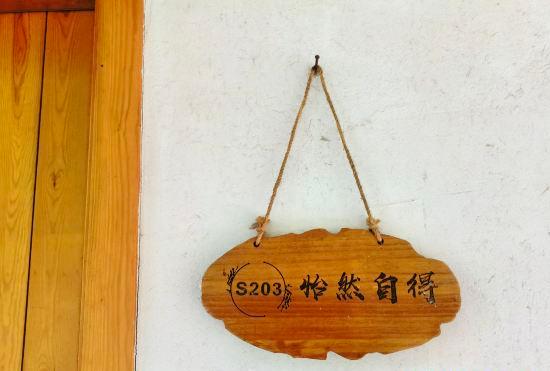 S203 怡然自得